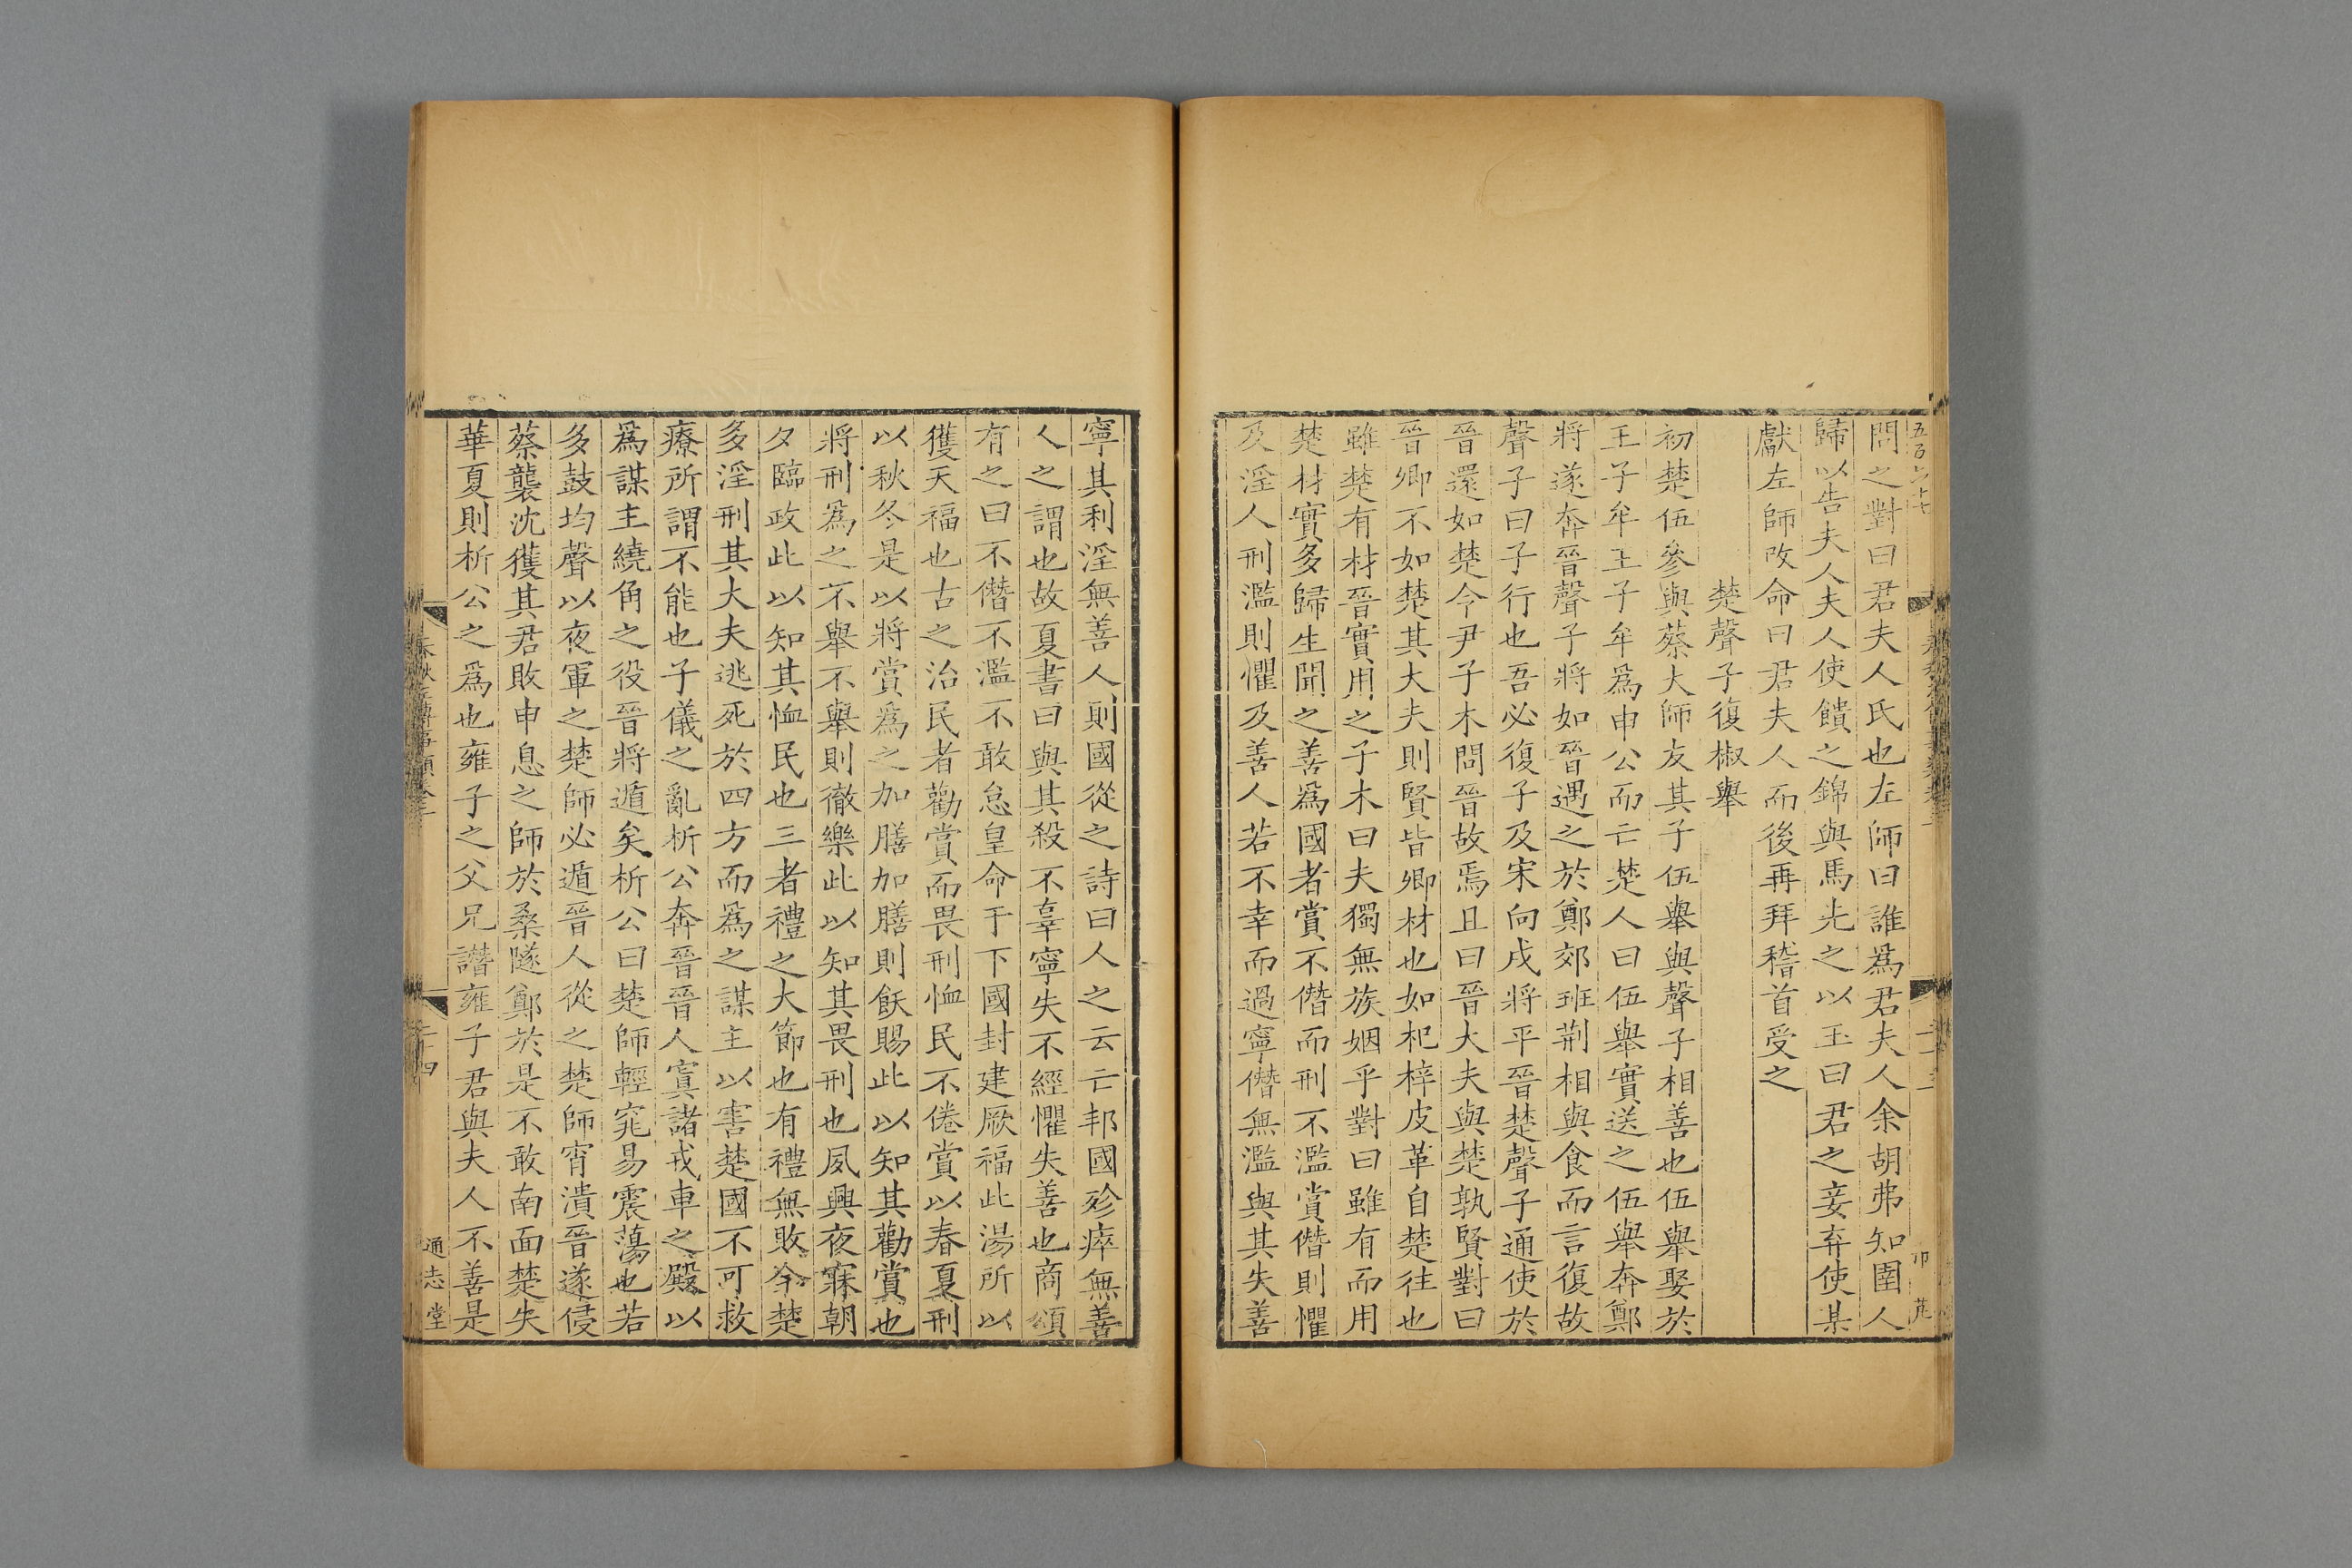 問之對曰君夫人氏也左師曰誰爲君夫人余胡弗知圉人
歸以告夫人夫人使饋之錦與馬先之以玉曰君之妾弃使某
獻左師改命曰君夫人而後再拜稽首受之
楚聲子復椒舉
初楚伍參與蔡大師友其子伍舉與聲子相善也伍舉娶於
王子牟王子牟爲申公而亡楚人曰伍舉實送之伍舉奔鄭
將遂奔晉聲子將如晉遇之於鄭郊班荆相與食而言復故
聲子曰子行也吾必復子及宋向戌將平晉楚聲子通使於
晉還如楚令尹子木問晉故焉且曰晉大夫與楚孰賢對曰
晉卿不如楚其大夫則賢皆卿材也如杞梓皮革自楚往也
雖楚有材晉實用之子木曰夫獨無族姻乎對曰雖有而用
楚材實多歸生聞之善爲國者賞不僭而刑不濫賞僭則懼
及淫人刑濫則懼及善人若不幸而過寧僭無濫與其失善
寧其利淫無善人則國從之詩曰人之云亡邦國殄瘁無善
人之謂也故夏書曰與其殺不辜寧失不經懼失善也商頌
有之曰不僭不濫不敢怠皇命于下國封建厥福此湯所以
獲天福也古之治民者勸賞而畏刑恤民不倦賞以春夏刑
以秋冬是以將賞爲之加膳加膳則飫賜此以知其勸賞也
將刑爲之不舉不舉則徹樂此以知其畏刑也夙興夜寐朝
夕臨政此以知其恤民也三者禮之大節也有禮無敗今楚
多淫刑其大夫逃死於四方而爲之謀主以害楚國不可救
療所謂不能也子儀之亂析公奔晉晉人寘諸戎車之殿以
爲謀主繞角之役晉將遁矣析公曰楚師輕窕易震蕩也若
多鼓均聲以夜軍之楚師必遁晉人從之楚師宵潰晉遂侵
蔡襲沈獲其君敗申息之師於桑隧鄭於是不敢南面楚失
華夏則析公之爲也雍子之父兄譖雍子君與夫人不善是
通志堂